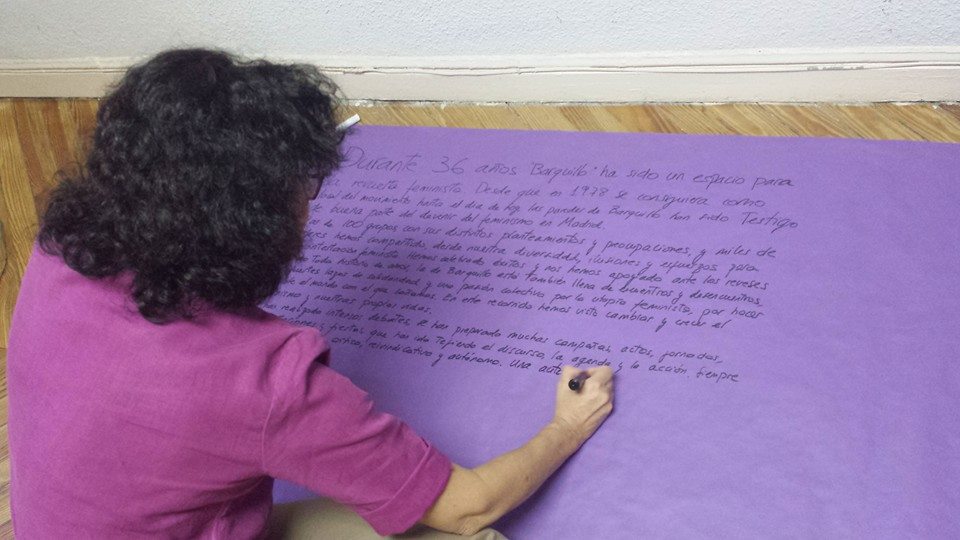 Durante 36 años "Barquillo" ha sido un espacio para
revuelta feminista. Desde que en 1978 se consiguiera como
del movimiento hasta el día de hoy las paredes de Barquillo han sido Testigo
buena parte del devenir del feminismo en Madrid.
de 100 grupos con sus distintos planteamientos y preocupaciones, y miles de
hemos compartido, desde nuestra diversidad, ilusiones y esfuerzos para
contestación feminista. Hemos celebrado éxitos y nos hemos apoyado ante los reveses
Toda historia de amor, la de Barquillo está también llena de encuentros y desencuentros,
fuertes lazos de solidaridad y una pasión colectiva por la utopía feminista, por hacer
el mundo con el que soñamos. En este recorrido hemos visto cambiar y crecer el
y nuestras propias vidas.
intensos debates, se han preparado muchas campañas, actos, jornadas
y fiestas que han ido tejiendo el discurso, la agenda y la acción. Siempre
crítico, reivindicativo y autónomo. Una